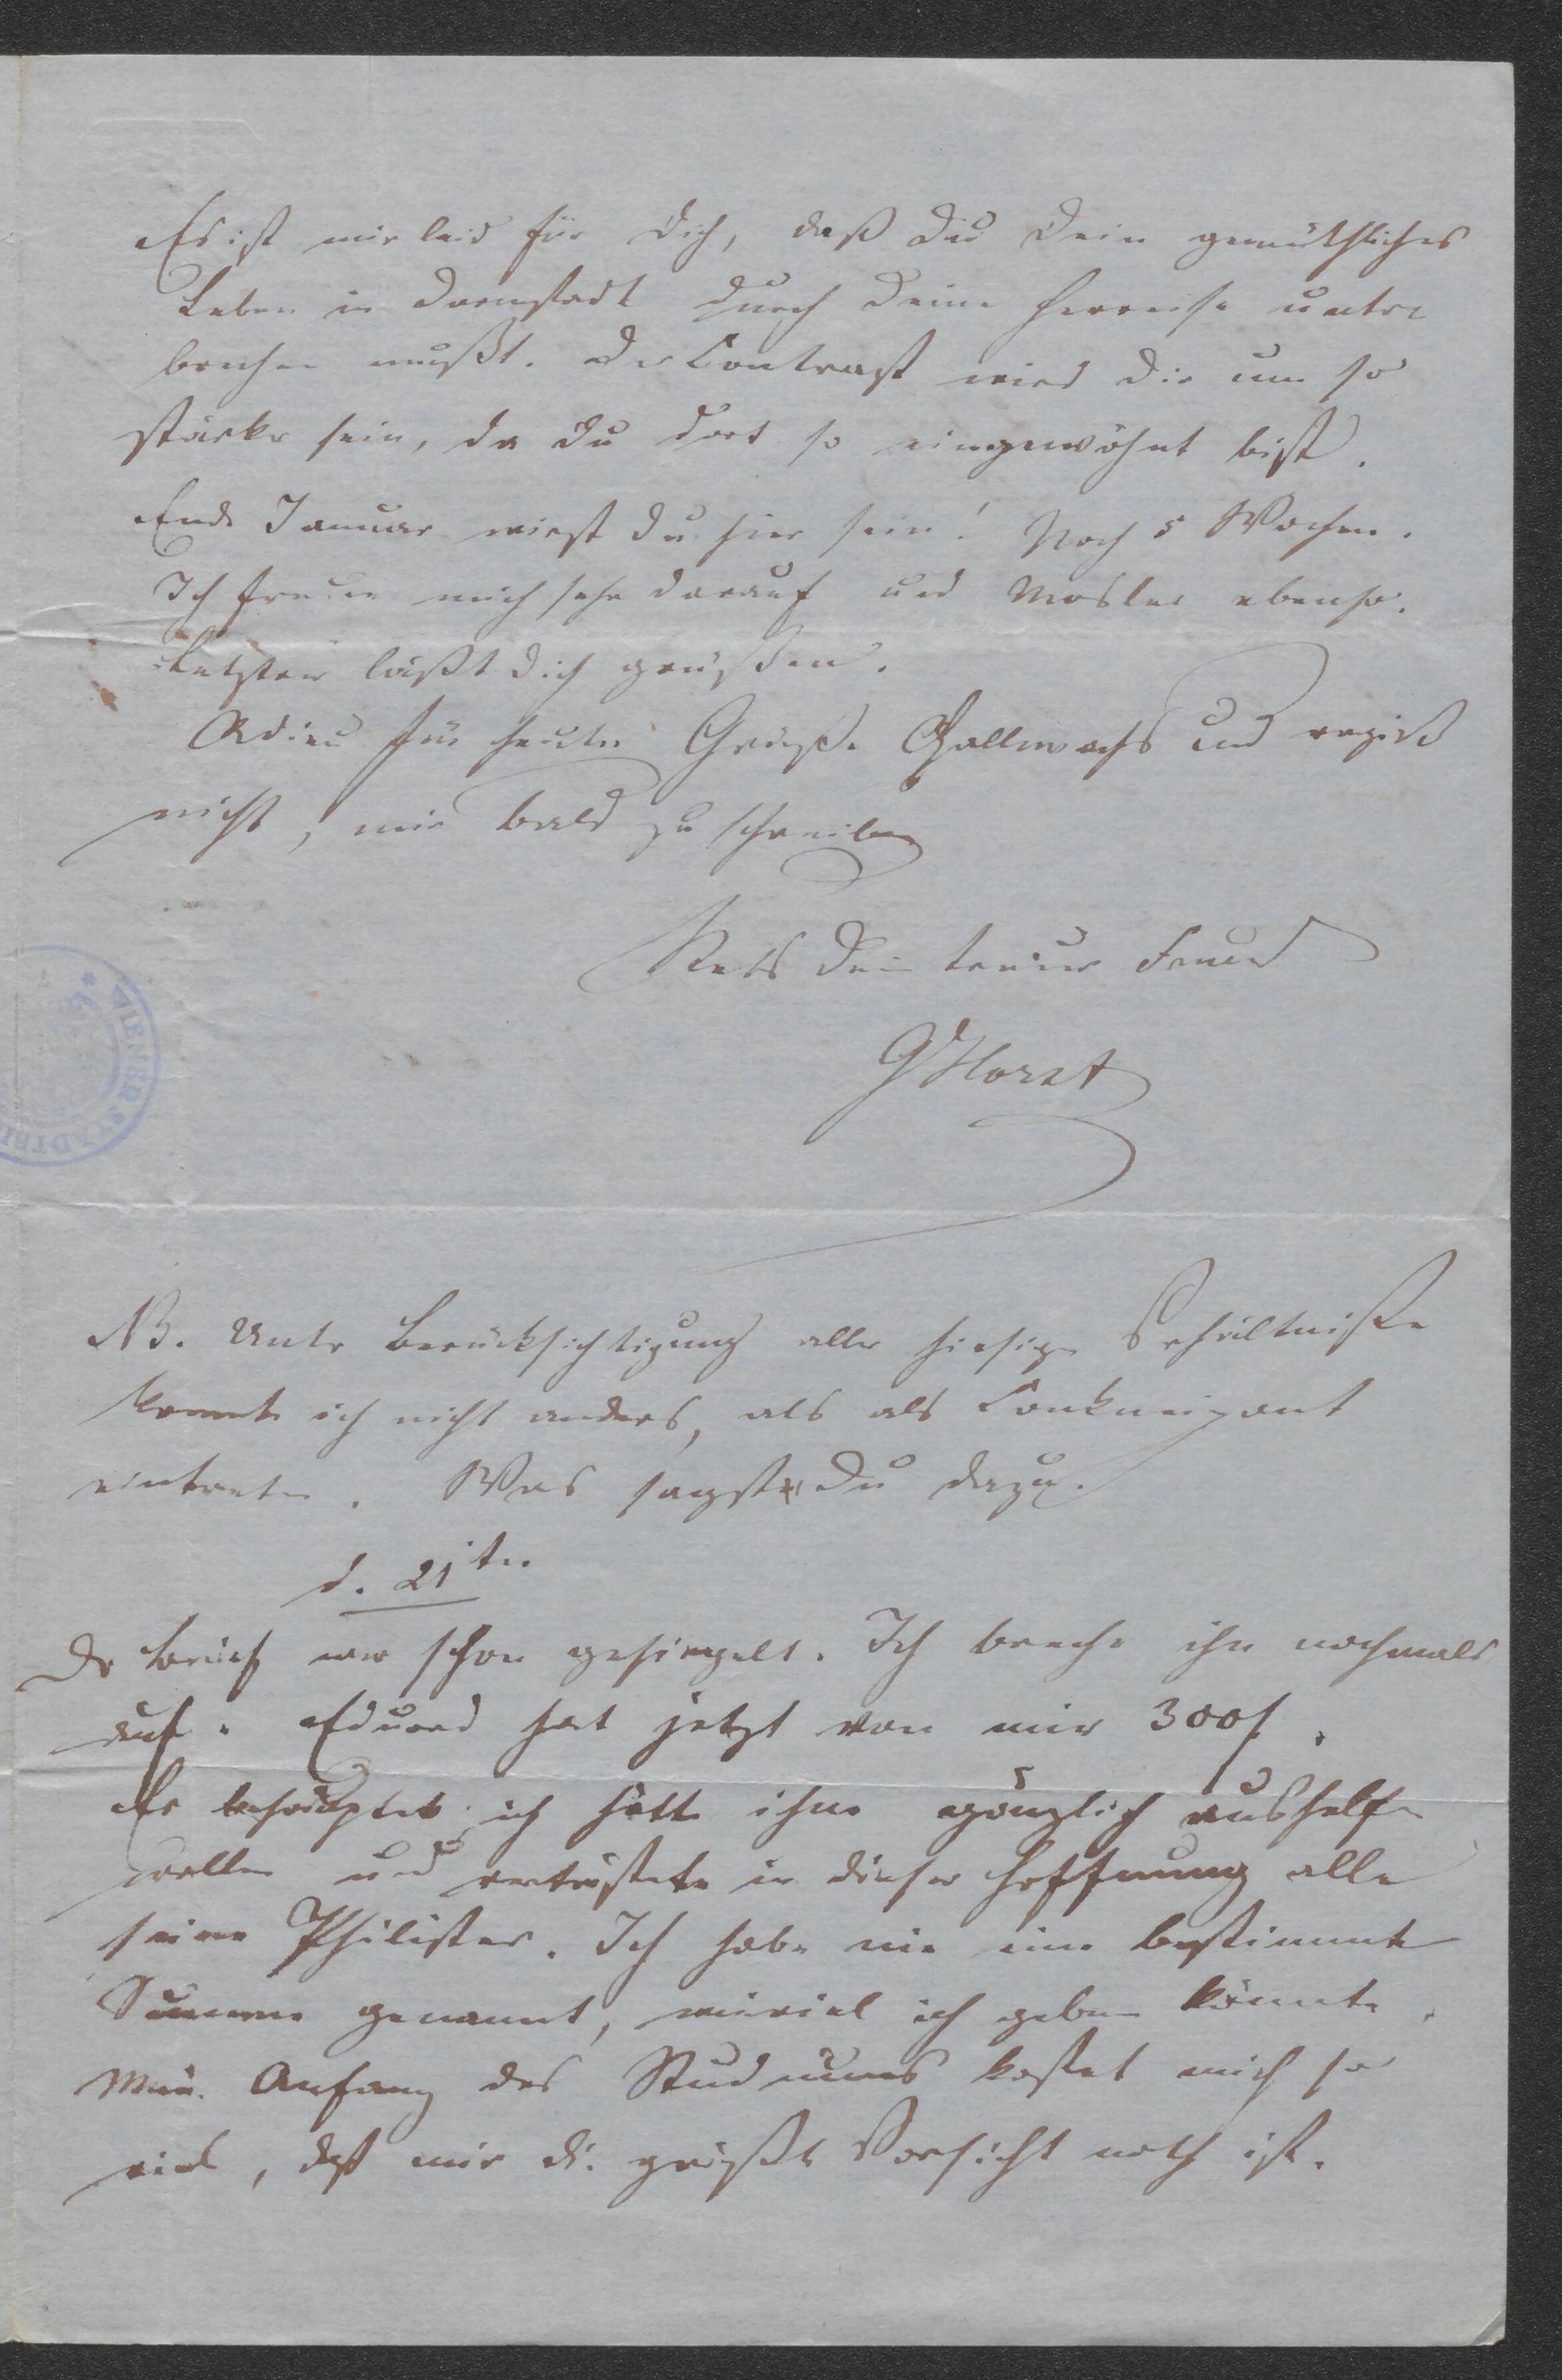 Es ist mir leid für Dich, daß Du Dein gemüthliches
Leben in Darmstadt durch Deine Herreise unter
brechen mußt. Der Contrast wird Dir um so
stärker sein, da Du dort so eingewöhnt bist.
Ende Januar wirst Du hier sein! Noch 5 Wochen.
Ich freue mich sehr darauf und Mosler ebenso.
Letzterer läßt Dich grüßen.
Adieu für heute Grüße Gallwachs und vergiß
nicht, mir bald zu schreiben
Stets Dein treuer Freund
G Horst
NB. Unter Berücksichtigung aller hiesigen Verhältnisse
konnte ich nicht anders, als als Conkneipant
eintreten. Was sagst Du dazu.
d. 21ten
Der Brief war schon gesiegelt. Ich breche ihn nochmals
auf. Eduard hat jetzt von mir 300 f.
Er behauptet ich hätte ihm gänzlich aushelfen
wollen und vertröstete in dieser Hoffnung alle
seine Philister. Ich habe nie eine bestimmte
Summe genannt, wieviel ich geben könnte.
Mein Anfang des Studiums kostet mich so
viel, daß mir die größte Vorsicht noth ist.
WIENER STADTBI